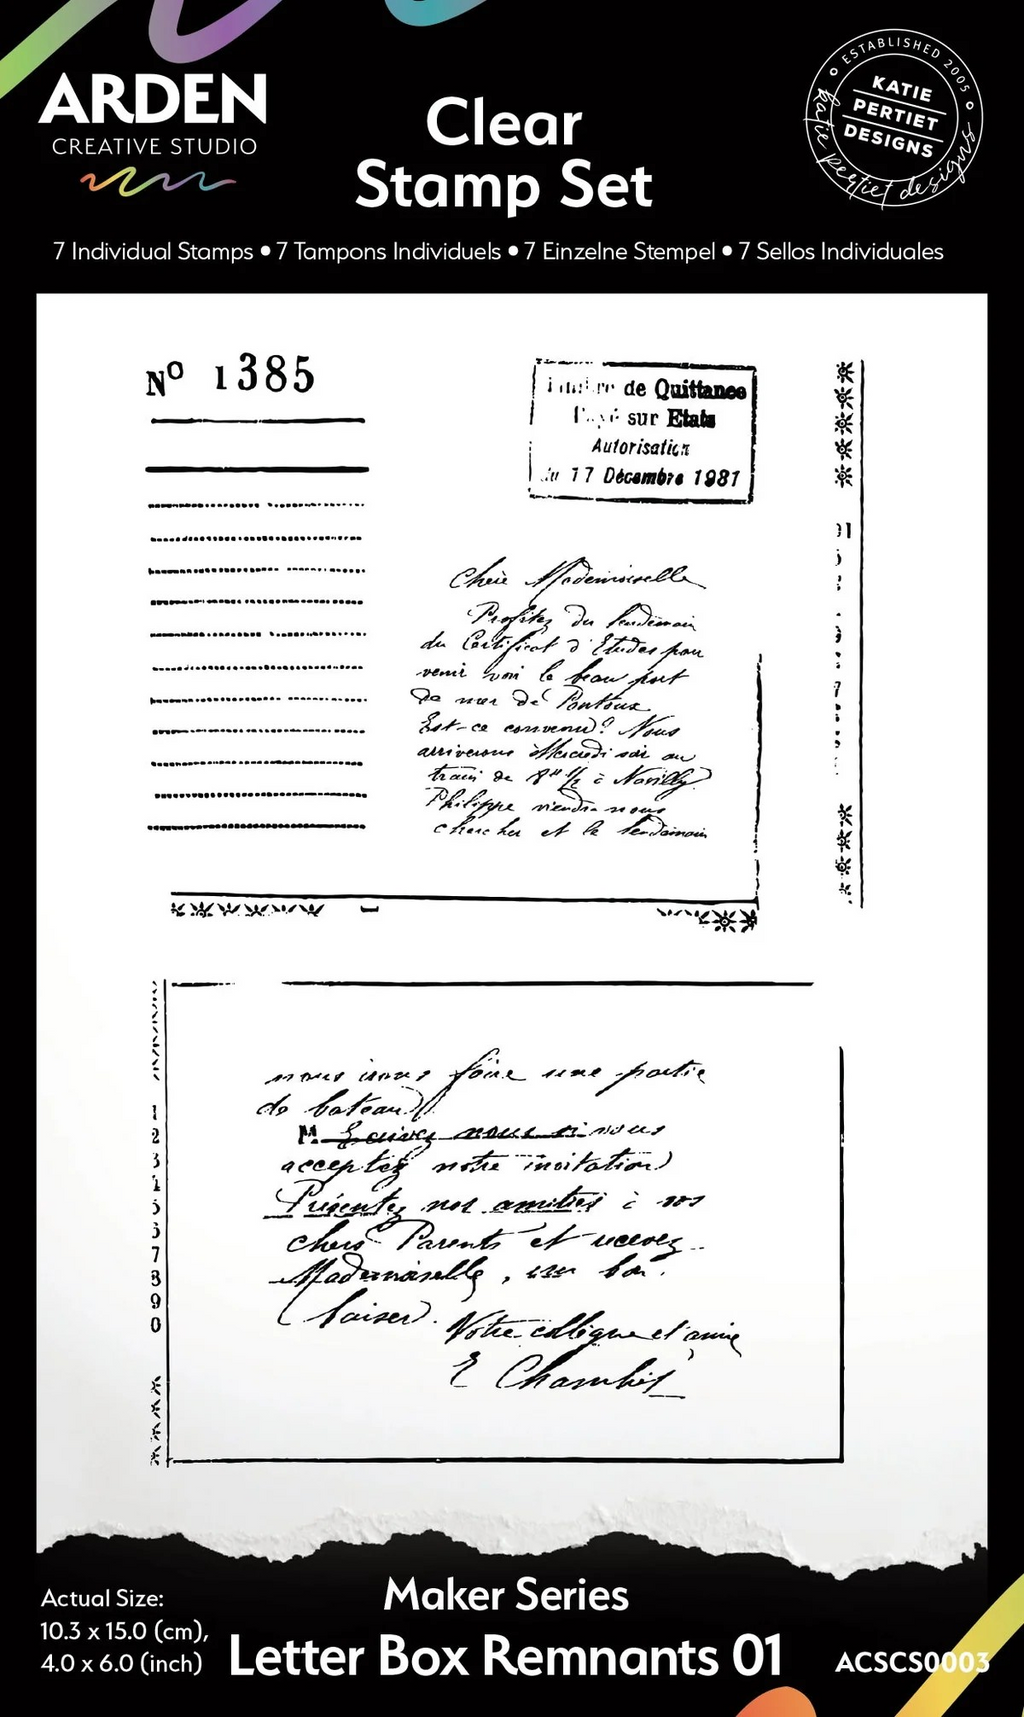 ARDEN
CREATIVE STUDIO
Clear
Stamp Set
ESTABLISHED 2005
KATIE
PERTIET
DESIGNS
katie pertiet designs
7 Individual Stamps • 7 Tampons Individuels • 7 Einzelne Stempel • 7 Sellos Individuales
Nº 1385
de Quittance
sur Etats
Autorisation
du 17 Décembre 1981
Chère Mademoiselle
Profitez du lendemain
du Certificat d'Etudes pour
venir voir le beau port
de mer de Pontoux
Est-ce convenu? Nous
arriverons Mercredi soir au
train de 8 H 1/2 à Navilly
Philippe viendra nous
chercher et le lendemain
nous irons faire une partie
de bateau
M Ecrivez nous si vous
acceptez notre invitation
Présentez nos amitiés à vos
chers Parents et recevez
Mademoiselle, un bon
baiser.
Votre collègue et amie
E
1
2
3
5
7
8
9
0
Maker Series
Letter Box Remnants 01
Actual Size:
10.3 x 15.0 (cm),
4.0 x 6.0 (inch)
ACSCS0003